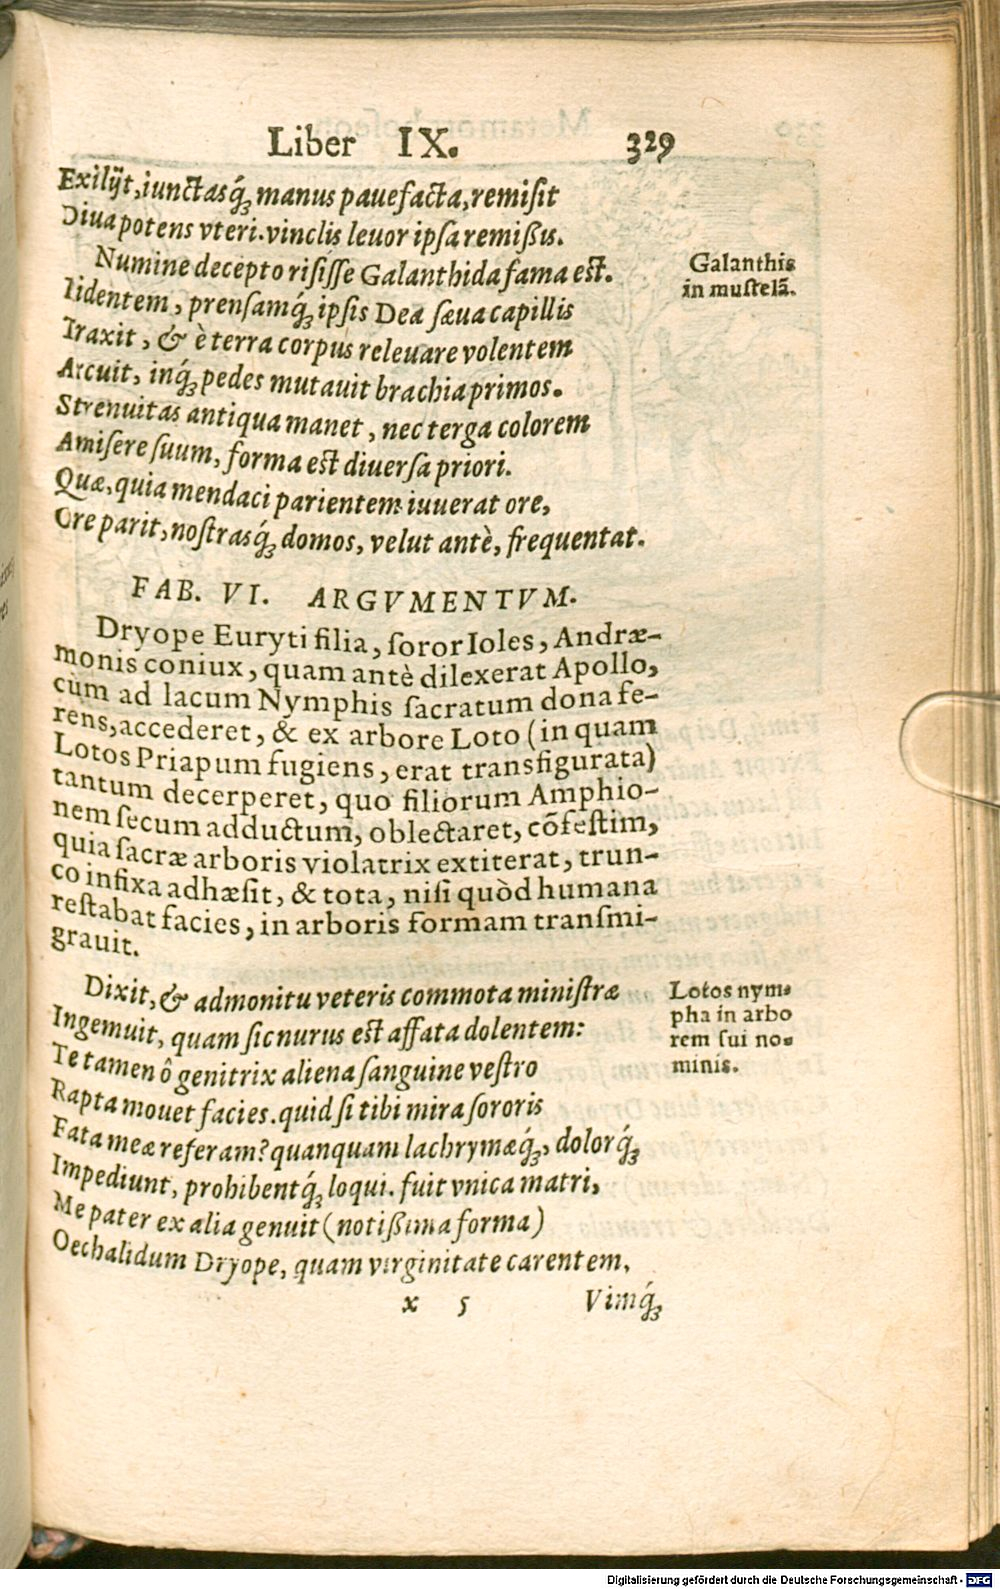 Liber IX. 329
Exilijt, iunctasq́; manus pauefacta, remiſit
Diua potens vteri. vinclis leuor ipſa remißis.
Numine decepto riſiſſe Galanthida fama est.
Galanthis
in mustelã.
Ridentem, prenſamq́; ipſis Dea ſæua capillis
Traxit, & è terra corpus releuare volentem
Arcuit, inq́; pedes mutauit brachia primos.
Strenuitas antiqua manet, nec terga colorem
Amiſere ſuum, forma est diuerſa priori.
Quæ, quia mendaci parientem iuuerat ore,
Ore parit, nostrasq́; domos, velut antè, frequentat.
FAB. VI. ARGVMENTVM.
Dryope Euryti filia, ſoror Ioles, Andræ-
monis coniux, quam antè dilexerat Apollo,
cùm ad lacum Nymphis ſacratum dona fe-
rens, accederet, & ex arbore Loto (in quam
Lotos Priapum fugiens, erat transfigurata)
tantum decerperet, quo filiorum Amphio-
nem ſecum adductum, oblectaret, cõfeſtim,
quia ſacræ arboris violatrix extiterat, trun-
co infixa adhæſit, & tota, niſi quòd humana
reſtabat facies, in arboris formam tranſmi-
grauit.
Dixit, & admonitu veteris commota miniſtræ
Lotos nym-
pha in arbo
rem ſui no-
minis.
Ingemuit, quam ſic nurus est affata dolentem:
Te tamen ô genitrix aliena ſanguine veſtro
Rapta mouet facies. quid ſi tibi mira ſororis
Fata meæ referam? quanquam lachrymæq́;, dolorq́;
Impediunt, prohibentq́; loqui. fuit vnica matri,
Me pater ex alia genuit (notißima forma)
Oechalidum Dryope, quam virginitate carentem,
x 5 Vimq́;
Digitalisierung gefördert durch die Deutsche Forschungsgemeinschaft - DFG